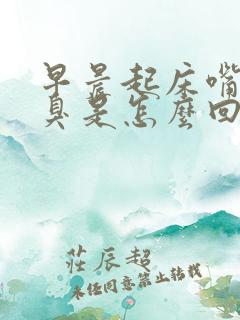 早晨起床嘴
臭是怎麼回
莊辰超
未经同意禁止转载